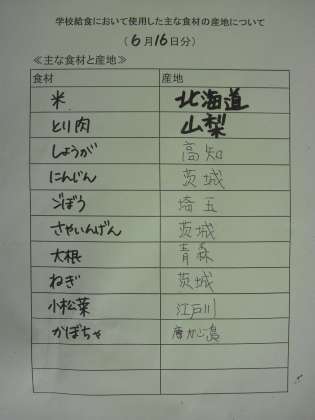 学校給食において使用した主な食材の産地について
(6月16日分)
≪主な食材と産地≫
食材 産地
米 北海道
とり肉 山梨
しょうが 高知
にんじん 茨城
ごぼう 埼玉
さやいんげん 茨城
大根 青森
ねぎ 茨城
小松菜 江戸川
かぼちゃ 鹿児島